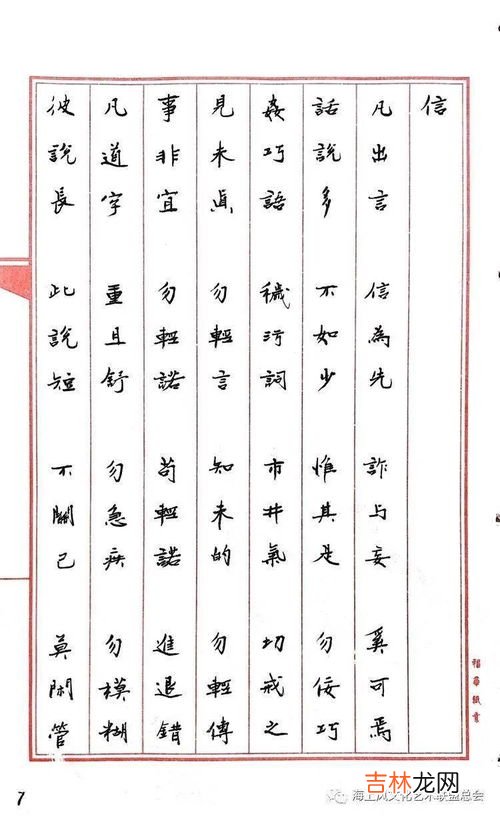 信
凡出言 信為先 詐与妄 奚可焉
話說多 不如少 惟其是 勿佞巧
姦巧語 穢汚詞 市井氣 切戒之
見未真 勿輕言 知未的 勿輕傳
事非宜 勿輕諾 苟輕諾 進退錯
凡道字 重且舒 勿急疾 勿模糊
彼說長 此說短 不關己 莫閑管
福華紙素
7
海上风文化艺术联盟总会
吉林龙网